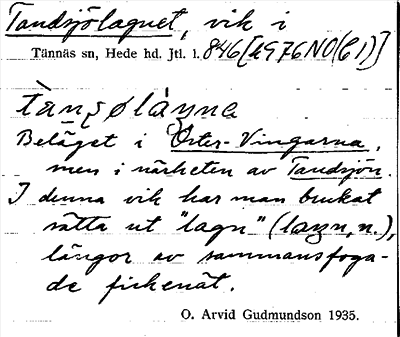 Tandsjölagnet, vik i
Tännäs sn, Hede hd. Jtl. l. 846 [49976NO(C1)]
Beläget i Öster-Vingarna,
men i närheten av Tandsjön.
I denna vik har man brukat
sätta ut "lagn" (laŋn, n.),
längor av sammansfoga-
de fiskenät.
O. Arvid Gudmundson 1935.